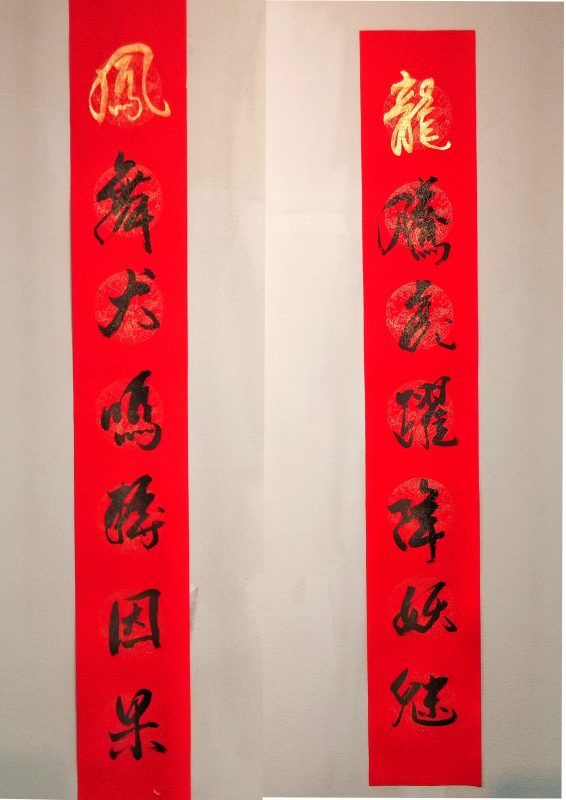 龍騰虎躍降妖魅
鳳舞犬鳴轉因果